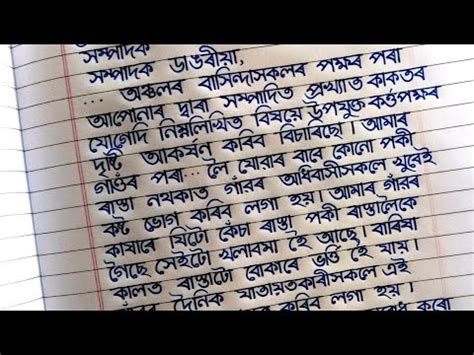 সম্পাদক
সম্পাদক ডাঙৰীয়া,
... অঞ্চলৰ বাসিন্দাসকলৰ পক্ষৰ পৰা
আপোনাৰ দ্বাৰা সম্পাদিত প্ৰখ্যাত কাকতৰ
যোগেদি নিম্নলিখিত বিষয়ে উপযুক্ত কৰ্তৃপক্ষৰ
দৃষ্টি আকৰ্ষন কৰিব বিচাৰিছো। আমাৰ
গাওঁৰ পৰা... লৈ যোৱাৰ বাবে কোনো পকী
ৰাস্তা নথকাত গাঁৱৰ অধিবাসীসকলে খুবেই
কষ্ট ভোগ কৰিব লগা হয়। আমাৰ গাঁৱৰ
কাষৰে যিটো কেঁচা ৰাস্তা পকী ৰাস্তালৈকে
গৈছে সেইটো খলাবমা হৈ আছে। বাৰিষা
কালত ৰাস্তাটো বোকাৰে ভৰ্ত্তি হৈ যায়।
দৈনিক যাতায়তকাৰীসকলে এই
কৰিব লগা হয়।
কৰো